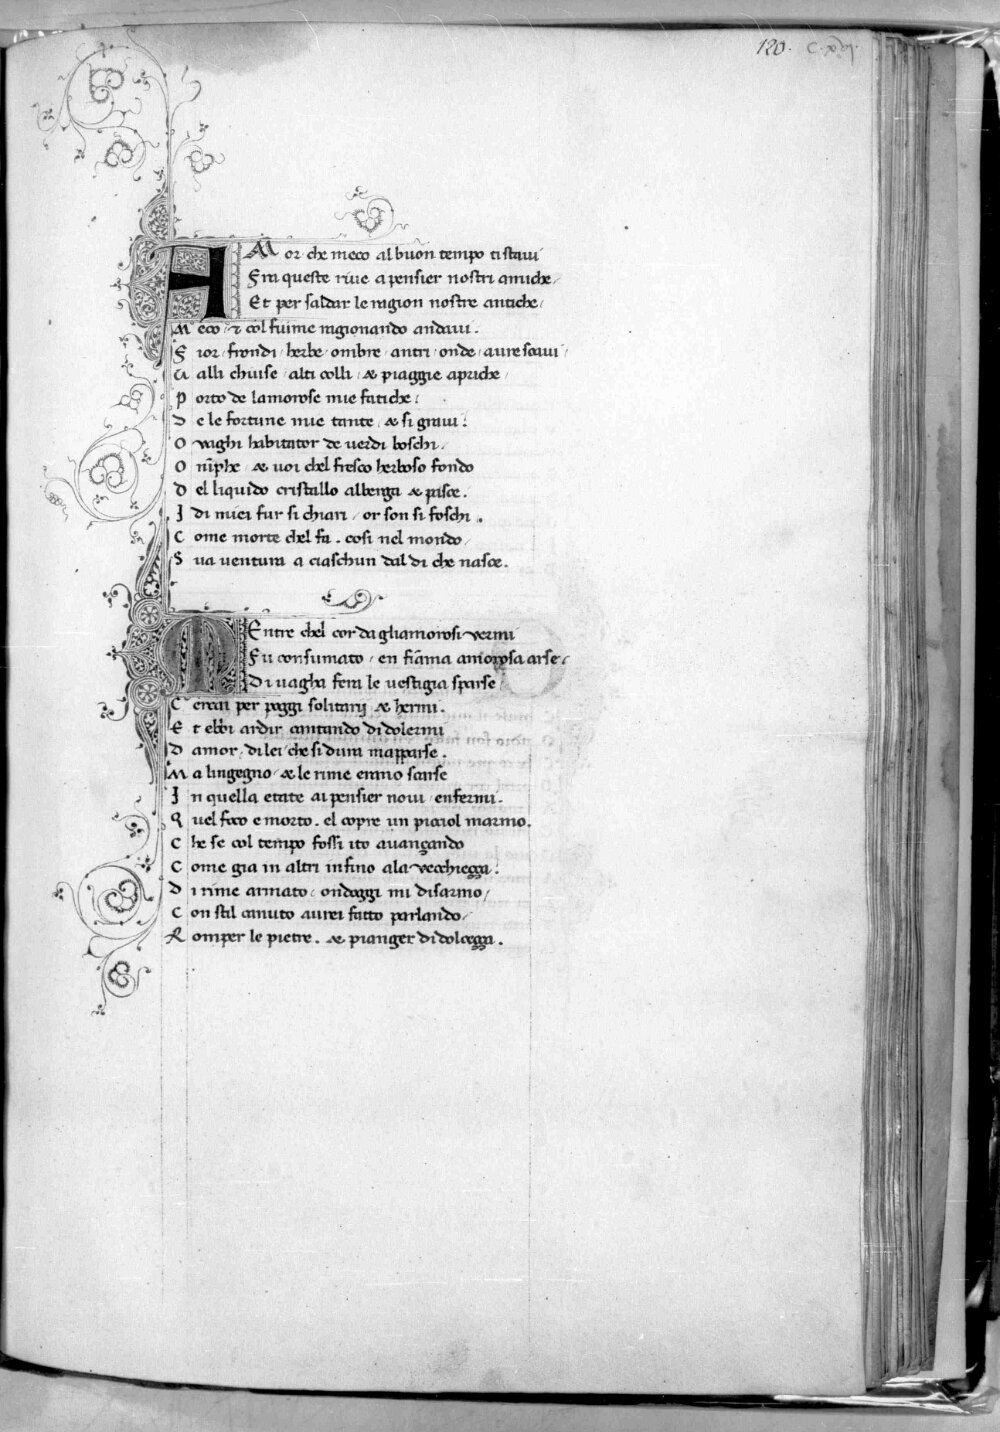 120. c. xvi.
AMor che meco al buon tempo ti staui
Fra queste riue a pensier nostri amiche
Et per saldar le ragion nostre antiche
Meco & col fiume ragionando andaui.
Fior frondi herbe ombre antri onde aure soaui
Valli chiuse alti colli & piaggie apriche
Porto de lamorose mie fatiche
De le fortune mie tante & si graui.
O vaghi habitator de uerdi boschi
O nimphe & uoi chel fresco herboso fondo
Del liquido cristallo alberga & pasce.
I di miei fur si chiari or son si foschi.
Come morte chel fa. cosi nel mondo
Sua uentura a ciaschun dal di che nasce.
MEntre chel cor da gliamorosi vermi
Fu consumato en fiama amorosa arse
Di uagha fera le uestigia sparse
Cercai per poggi solitarij & hermi.
Et ebbi ardir cantando di dolermi
D amor di lei che si dura mapparse.
Ma lingegno & le rime erano scarse
In quella etate ai pensier noui enfermi.
Quel foco e morto. el copre un picciol marmo.
Che se col tempo fossi ito auançando
Come gia in altri infino ala vecchieçça.
Di rime armato ondoggi mi disarmo
Con stil canuto aurei fatto parlando
Romper le pietre. & pianger di dolceçça.